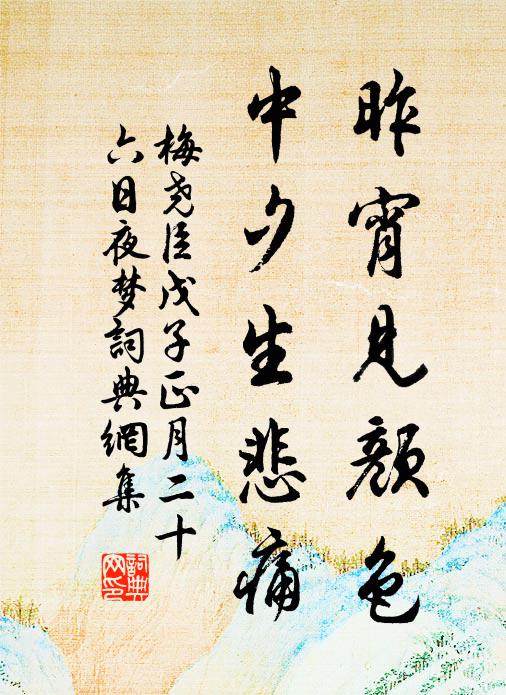 昨宵見顏色
中夕生悲痛
梅堯臣戊子正月二十
六日夜梦詞典網集
詞典
网印